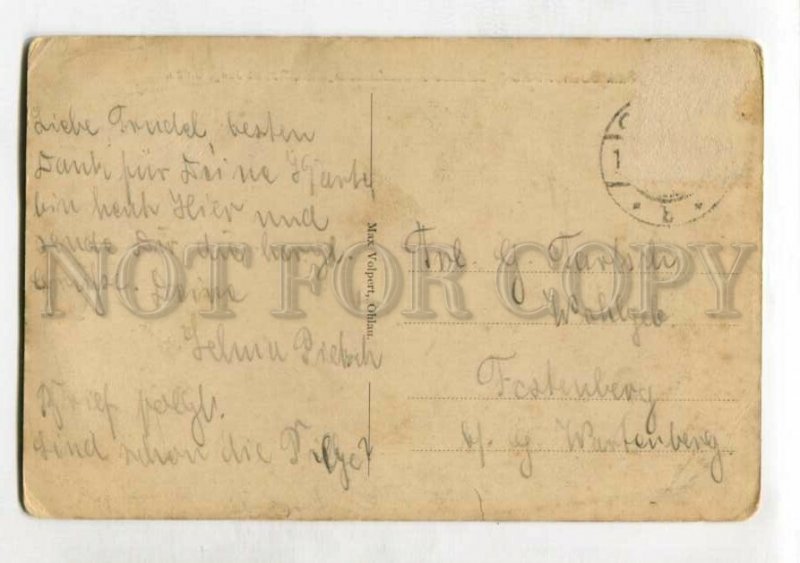 Liebe Trudel, besten
Dank für Deine Karte
bin heut hier und
sende Dir die herzl.
Grüße. Deine
Selma Pietsch
Brief folgt.
Sind schon die Pilze?
Max Volpert, Ohlau.
Frl.
Wohlgeb.
Festenberg
Wartenberg
NOT FOR COPY